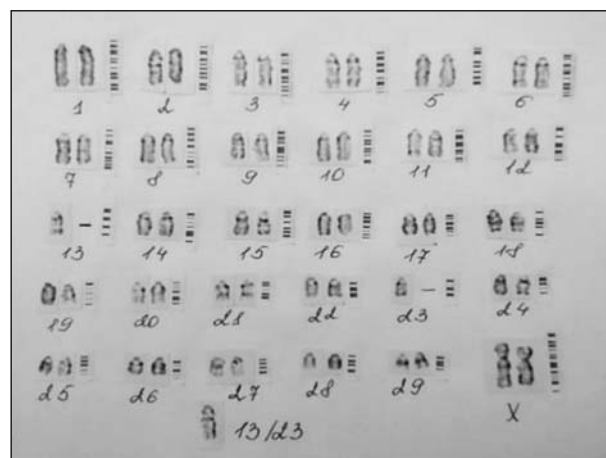 1 2 3 4 5 6
7 8 9 10 11 12
13 – 14 15 16 17 18
19 20 21 22 23 – 24
25 26 27 28 29 X
13/23